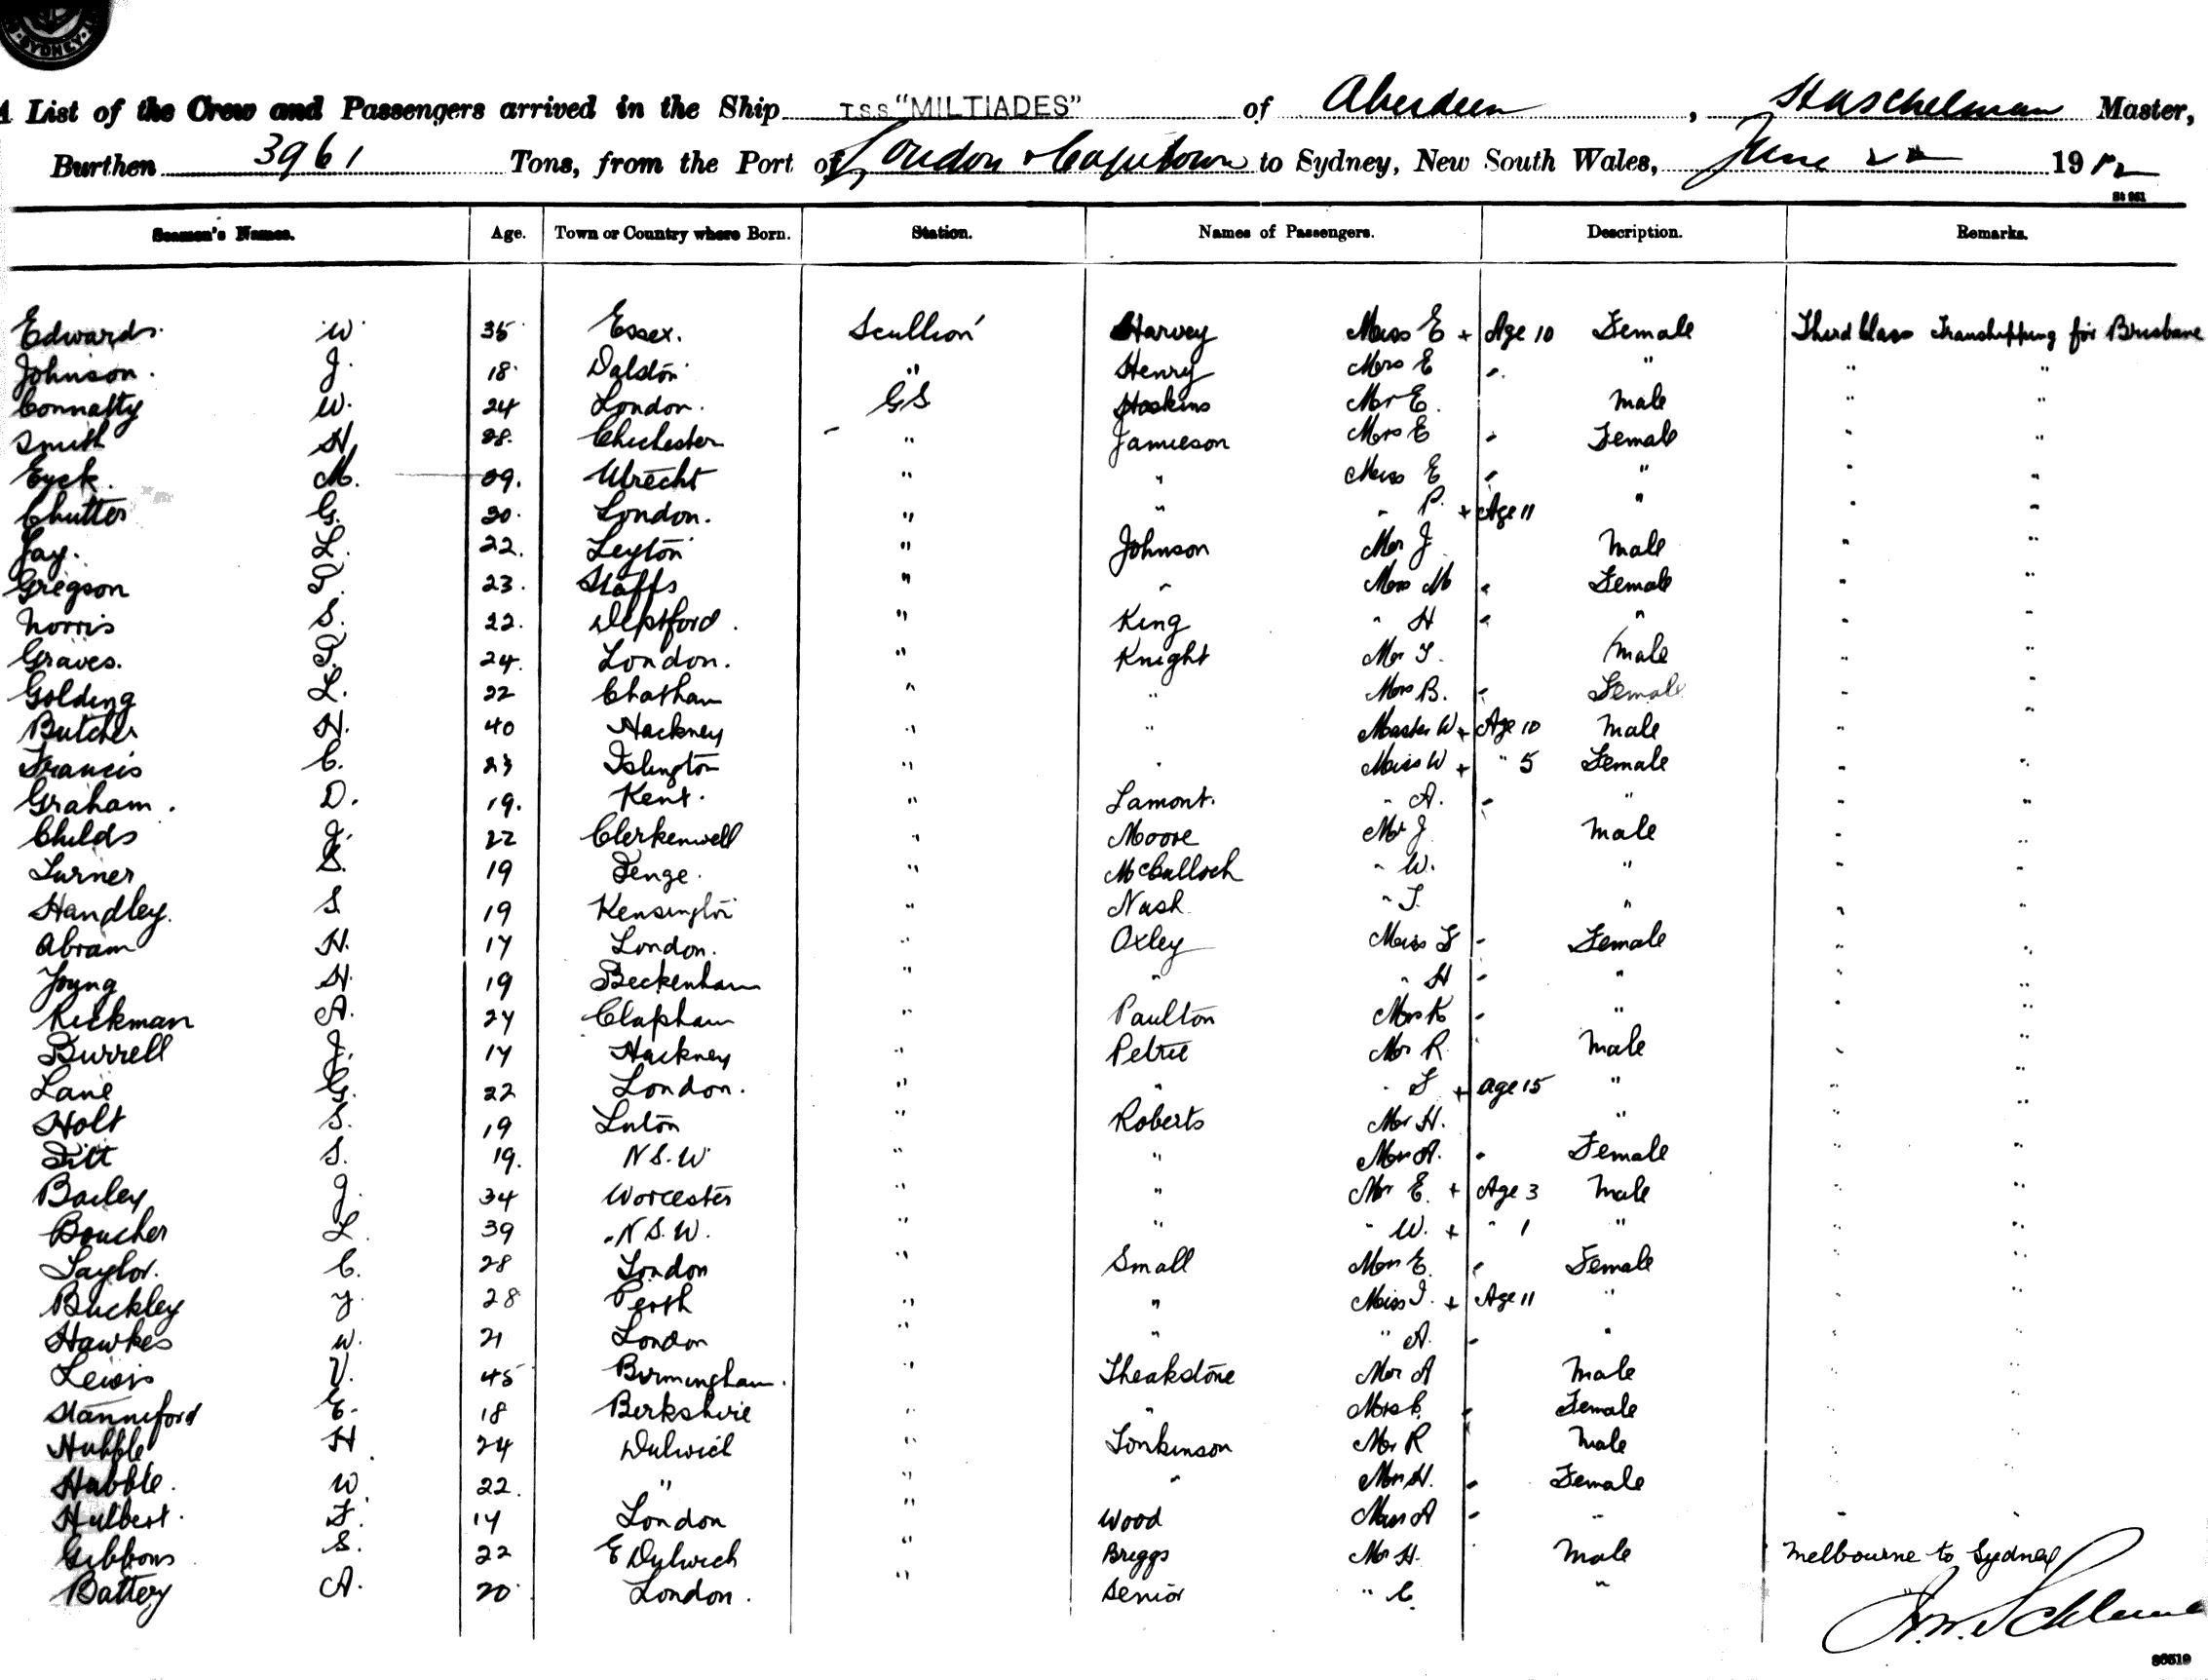 SYDNEY
A List of the Crew and Passengers arrived in the Ship T.S.S "MILTIADES" of Aberdeen, Master,
Burthen 3961 Tons, from the Port of London & Capetown to Sydney, New South Wales, June 22 1912
St 961
Seamen's Names. Age. Town or Country where Born. Station. Names of Passengers. Description. Remarks.
Edwards W. 35 Essex. Scullion Harvey Miss E + Age 10 Female Third Class Transhipping for Brisbane
Johnson. J. 18 Dalston " Henry Mrs E " " "
Connatty W. 24 London. G S Hoskins Mr E. Male " "
Smith H. 28. Chichester " Jamieson Mrs E Female " "
Eyck. M. 29. Utrecht " " Miss E " " "
Chutter G. 30. London. " " " P. + Age 11 " " "
Jay. L. 22. Leyton " Johnson Mr J Male " "
Gregson T. 23. Staffs " " Mrs M Female " "
Norris S. 22. Deptford. " King " H " " "
Graves. T. 24. London. " Knight Mr T. Male " "
Golding L. 22 Chatham " " Mrs B. Female " "
Butcher H. 40 Hackney " " Master W + Age 10 Male "
Francis C. 23 Islington " " Miss W + " 5 Female " "
Graham. D. 19. Kent. " Lamont. " A. " " "
Childs J. 22 Clerkenwell " Moore Mr J Male " "
Turner S. 19 Penge. " McCulloch " W. " " "
Handley. S. 19 Kensington " Nash " T. " " "
Abram H. 17 London. " Oxley Miss F Female " "
Young H. 19 Beckenham " " " H " " "
Kickman A. 24 Clapham " Paulton Mrs K " " "
Burrell J. 17 Hackney " Petrie Mr R Male " "
Lane G. 22 London. " " " F + age 15 " " "
Holt S. 19 Luton " Roberts Mr H. " " "
Titt S. 19. N S. W " " Mrs A. Female " "
Bailey J. 34 Worcester " " Mr E. + Age 3 Male " "
Boucher L. 39 N S. W. " " " W. + " 1 " " "
Taylor. C. 28 London " Small Mrs E. Female " "
Buckley J. 28 Perth " " Miss I. + Age 11 " " "
Hawkes W. 21 London " " " A. " " "
Lewis V. 45 Birmingham. " Theakstone Mr A Male " "
Stanniford E. 18 Berkshire " " Mrs C. Female " "
Hubble H. 24 Dulwich " Tonkinson Mr R Male " "
Hubble. W 22. " " " Mrs H. Female " "
Hulbert. F. 17 London " Wood Miss A " " "
Gibbons S. 22 E Dulwich " Briggs Mr H. Male Melbourne to Sydney
Battery A. 20 London. " Senior " C. " "
86519